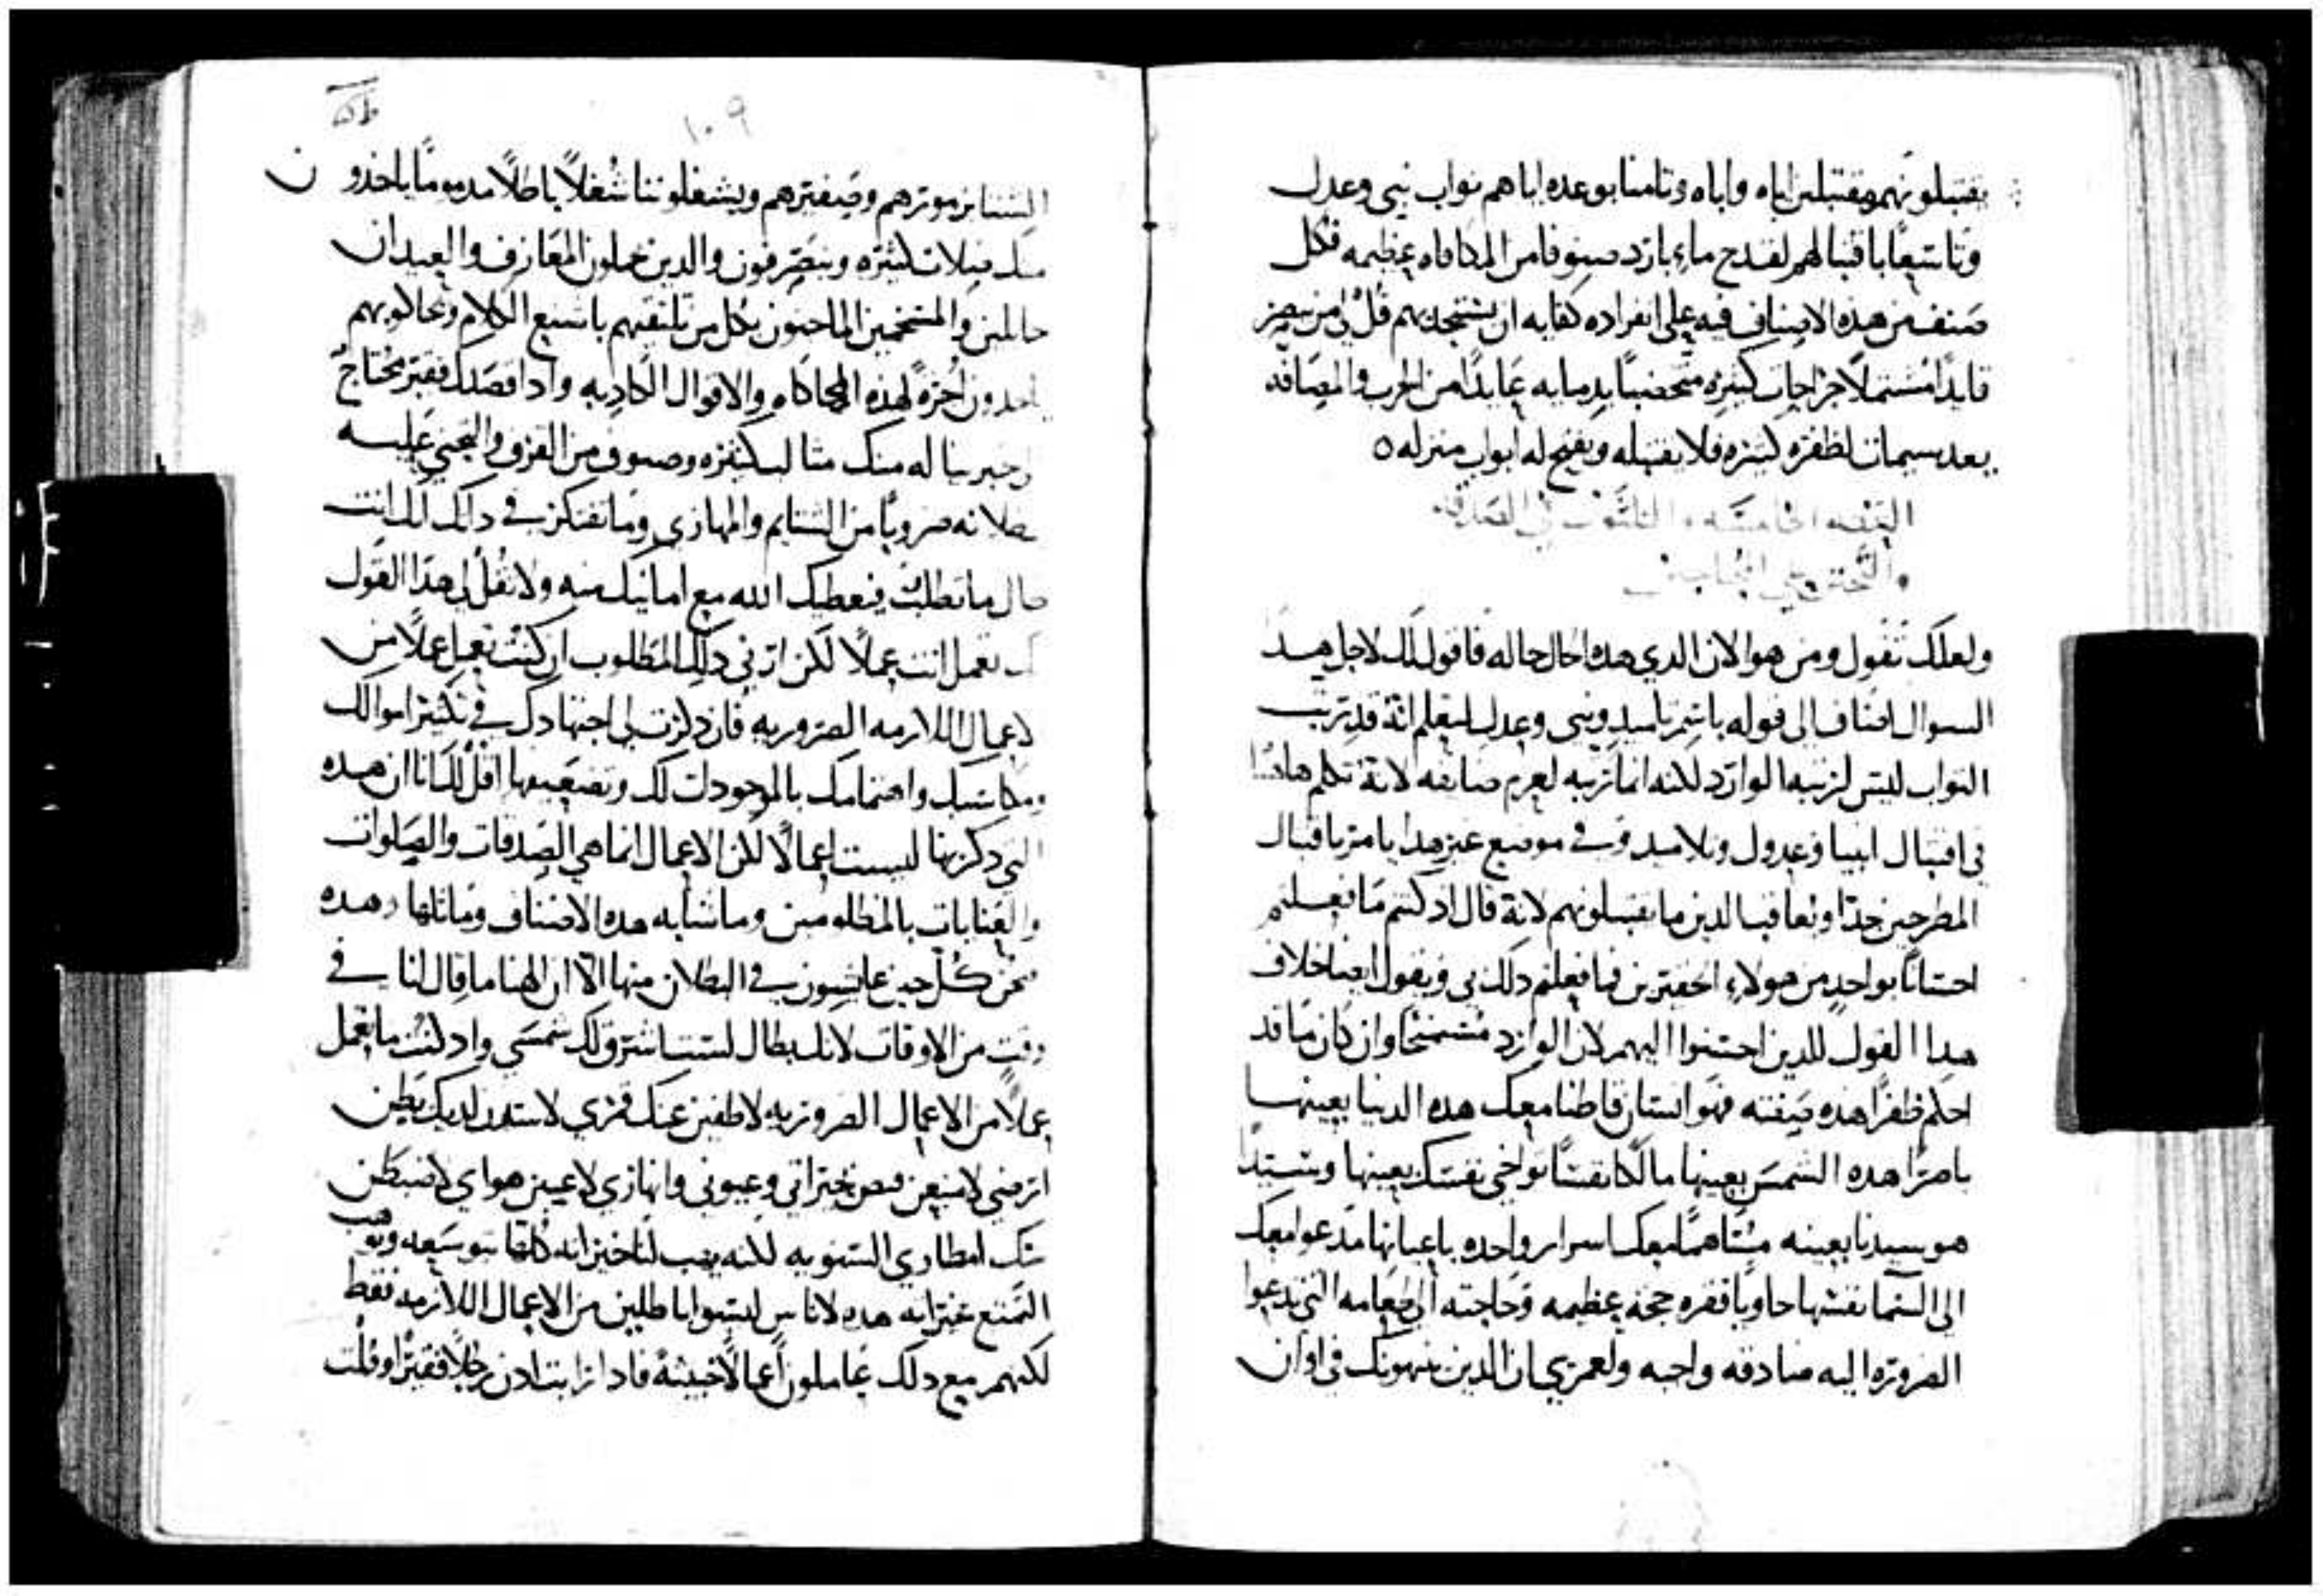 يقتبلونهم ومقتبلين اياه واباه وثامنا بوعده اياهم ثواب نبي وعدل
وتاسعا باقتبالهم لقدح ماء بارد صنوفا من المكافاه عظيمه فكل
صنف من هده الاصناف فيه على انفراده كفايه ان يستجدبهم قل لي من يبصر
قايدا مشتملا جراحات كثيره متخضبا بدمايه عايدا من الحرب والمصافه
بعد سيمات لظفره كثيره فلا يقتبله ويفتح له ابواب منزله
العظه الخامسه والثلثون في الصدقه
والتحنن على
ولعلك تقول ومن هو الان الدي هده الحال حاله فاقول لك لاجل هدا
السوال اضاف الى قوله باسم تلميد ونبي وعدل لتعلم انه قد رتب
الثواب ليس لرتبه الوارد لكنه انما رتبه لعزم ضايفه لانه تكلم هاهنا
في اقتبال انبيا وعدول وتلاميد وفي موضع غير هدا يامر باقتبال
المطرحين جدا ويعاقب الدين ما يقتبلونهم لانه قال اد كنتم ما فعلتم
احسانا بواحد من هولاء الحقيرين فما فعلتم دلك بي ويقول ايضا خلاف
هدا القول للدين احسنوا اليهم لان الوارد مستمنحا وان كان ما قد
احكم ظفرا هده صفته فهو انسان قاطنا معك هده الدنيا بعينها
باصرا هده الشمس بعينها مالكا نفسا تواخي نفسك بعينها وسيدا
هو سيدنا بعينه مساهما معك اسرار واحده باعيانها مدعوا معك
الى السما نفسها حاويا فقره حجه عظيمه وحاجته الى طعامه التي تدعوا
الضروره اليه صادقه واجبه ولعمري ان الدين ينبهونك في اوان
١٠٩
الشتا بزمرهم وصفيرهم ويشغلوننا شغلا باطلا مدموما ياخدون
منك صلات كثيره وينصرفون والدين يحملون المعازف والعيدان
حاملين والمسخمين الماجنون بكل من تلتقيهم باشنع الكلام ومحاكونهم
ياخدون اجره لهده المحاكاه والاقوال الكادبه وادا قصدك فقير محتاج
خبز ينا له منك مثالب كثيره وصنوف من القرف والتجني عليه
بطلانه ضروبا من الشتايم والمهازي وما تفتكر في دالك انك انت
بطال ما تطلب فيعطيك الله مع امانيك منه ولا تقل لي هدا القول
انك تعمل انت عملا لكن ارني دلك المطلوب ان كنت تعمل عملا من
الاعمال اللازمه الضروريه فان دكرت لي اجتهادك في تكثير اموالك
ومكاسبك واهتمامك بالموجودات لك وتضعيفها اقل لك انا ان هده
التي دكرتها ليست اعمالا لكن الاعمال انما هي الصدقات والصلوات
والعنايات بالمظلومين وما شابه هده الاصناف وماثلها وهده
نحن كل حين عايشون في البطلان منها الا ان الهنا ما قال لنا في
وقت من الاوقات لانك بطال لست اشرق لك شمسي واد كنت ما تعمل
عملا من الاعمال الضروريه لاطفين عنك قمري لاسدن لديك بطن
ارضي لامنعن فيض بحيراتي وعيوني وانهاري لاغيبن هواي لاضبطن
عنك امطاري السنويه لكنه يهب لنا خيراته كلها بتوسعه ويهب
التمتع بخيراته هده لاناس ليسوا باطلين من الاعمال اللازمه فقط
لكنهم مع دلك عاملون اعمالا خبيثه فادا رايت ادن رجلا فقيرا وقلت